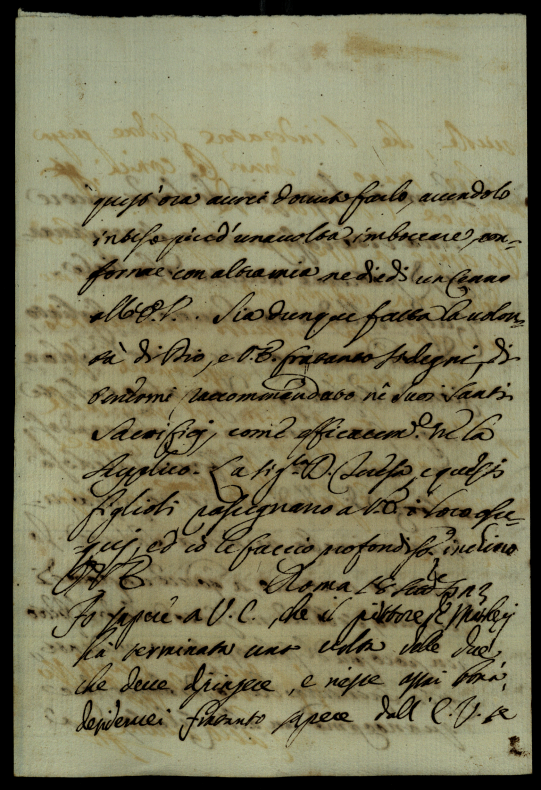 quest'ora aurei douuto farlo, auendolo
inteso più d'una uolta imboccare, con-
forme con altra mia ne diedi un Cenno
all'E.V. Sia dunque fatta la uolon-
tà di Dio, e V.E. frattanto si degni, di
tenermi raccommandato nè suoi Santi
Sacrificj, come efficacem.e ne la
supplico. La Sig.ra D. Teresa, e questi
figlioli rassegnano a V.E. i loro osse-
quij, ed io le faccio profondiss.o inchino
Roma
Fo sapere a V.E., che il pittore
hà terminata una volta delle due,
che deve dipingere, e riesce assai bona,
desidererei frattanto sapere dall'E.V. se